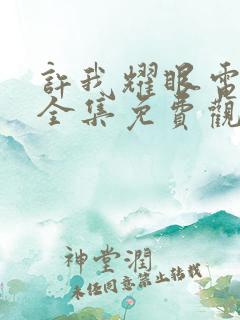 許我耀眼電
全集免費觀
神堂潤
未经同意禁止转载